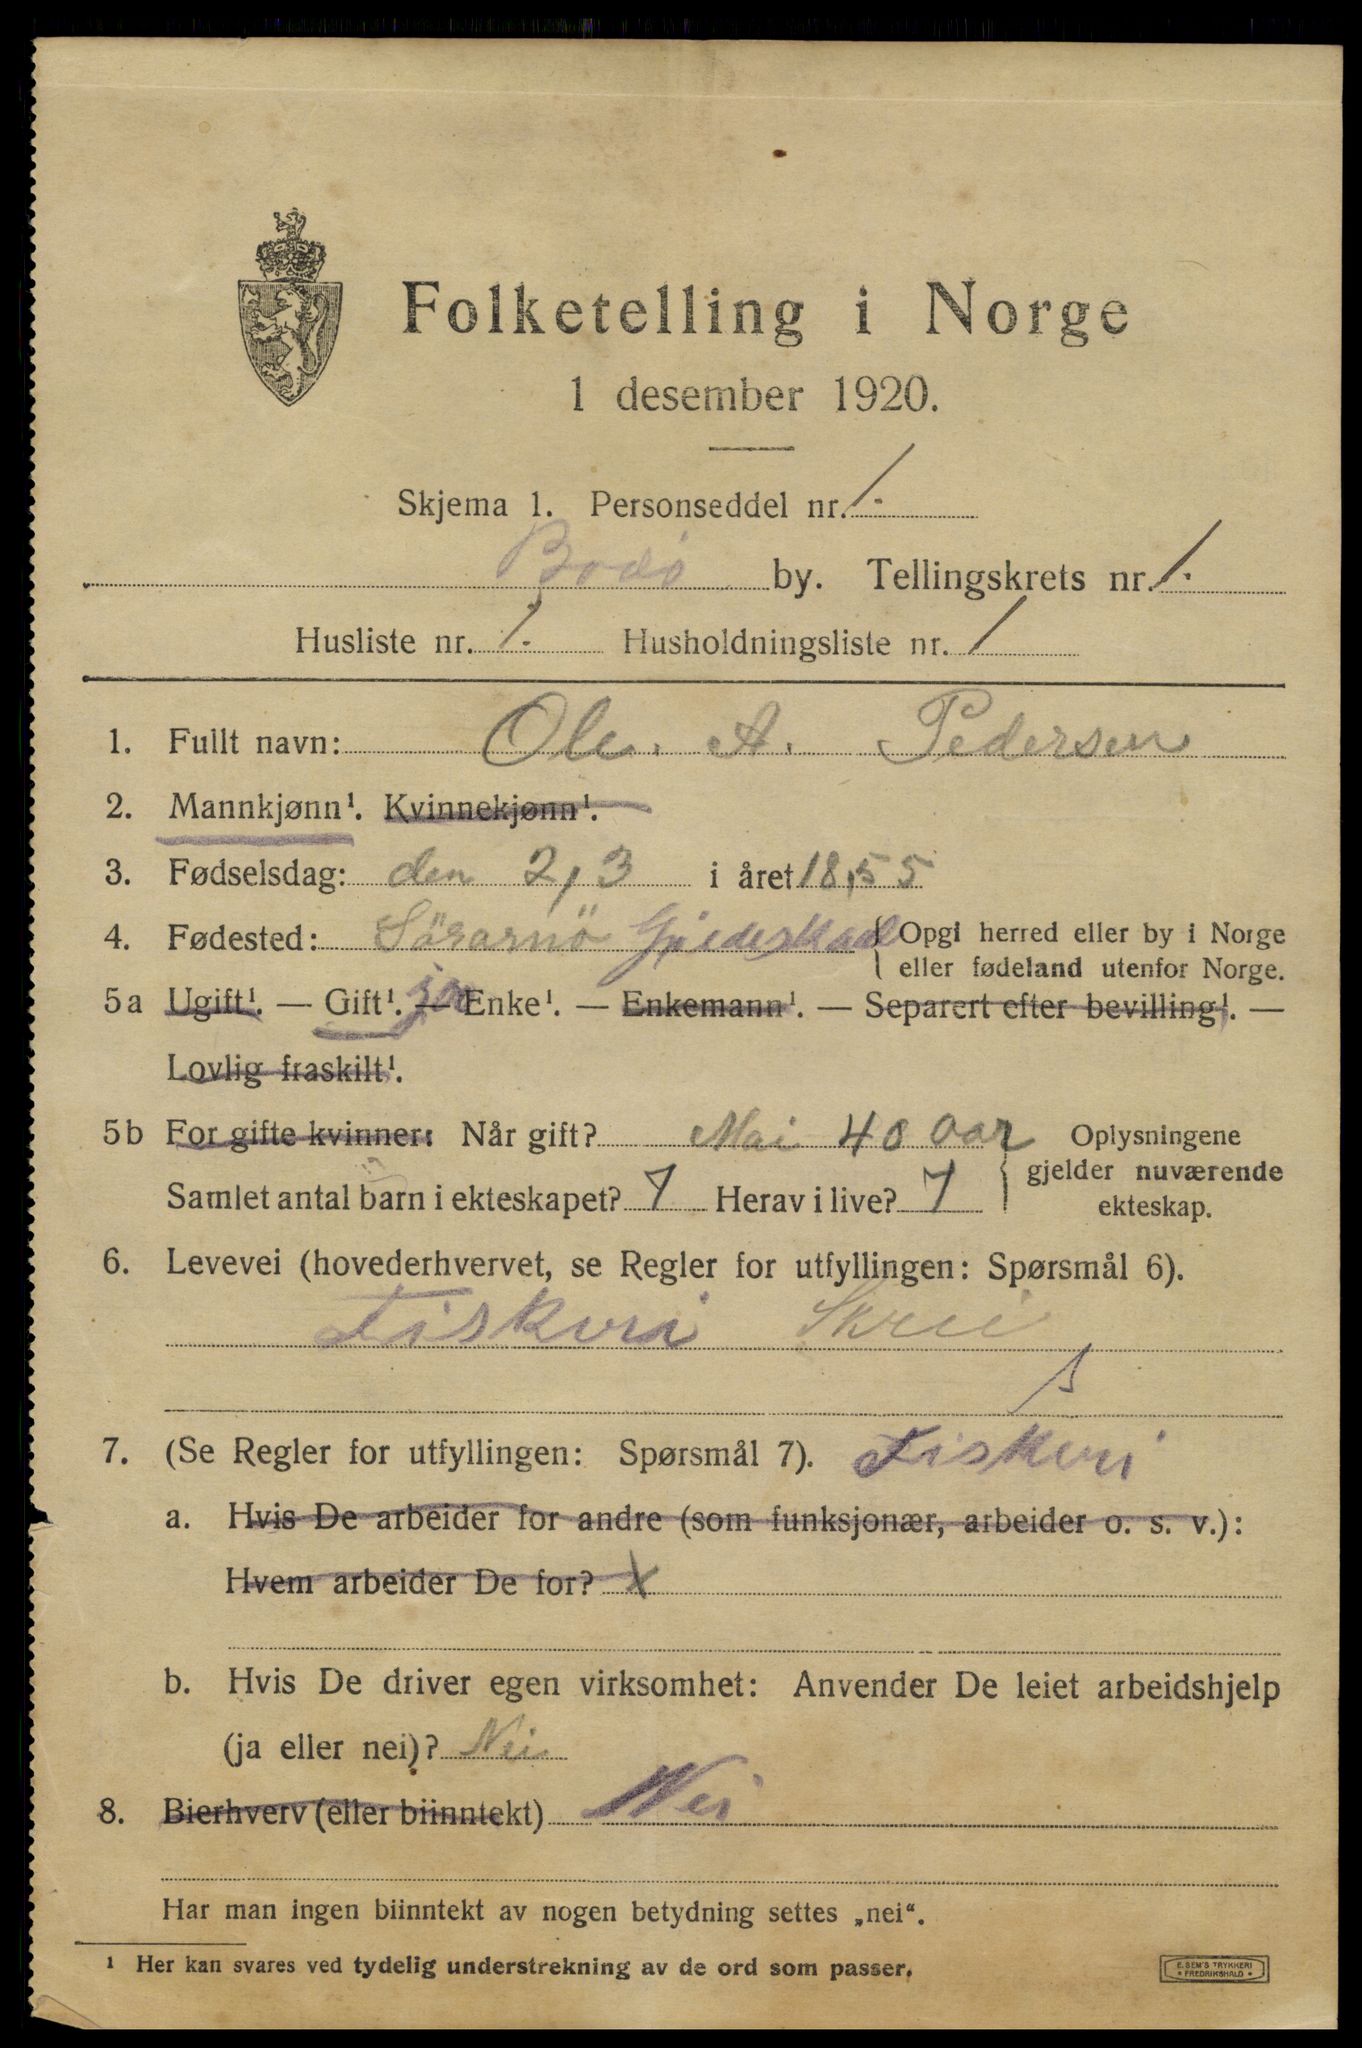 Folketelling i Norge
1 desember 1920.
Skjema 1. Personseddel nr. 1.
Bodø by. Tellingskrets nr. 1.
Husliste nr. 1. Husholdningsliste nr. 1
1. Fullt navn: Ole. A. Pedersen
2. Mannkjønn¹. Kvinnekjønn¹.
3. Fødselsdag: den 2/3 i året 1855
4. Fødested: Sörarnö Gjideskaal { Opgi herred eller by i Norge
eller fødeland utenfor Norge.
5a Ugift¹. — Gift¹. ja — Enke¹. — Enkemann¹. — Separert efter bevilling¹. —
Lovlig fraskilt¹.
5b For gifte kvinner: Når gift? Mai 40 aar } Oplysningene
gjelder nuværende
ekteskap.
Samlet antal barn i ekteskapet? 7 Herav i live? 7
6. Levevei (hovederhvervet, se Regler for utfyllingen: Spørsmål 6).
Fiskeri Skrei
s
7. (Se Regler for utfyllingen: Spørsmål 7). Fiskeri
a. Hvis De arbeider for andre (som funksjonær, arbeider o. s. v.):
Hvem arbeider De for? X
b. Hvis De driver egen virksomhet: Anvender De leiet arbeidshjelp
(ja eller nei)? Nei
8. Bierhverv (eller biinntekt) Nei
Har man ingen biinntekt av nogen betydning settes „nei“.
¹ Her kan svares ved tydelig understrekning av de ord som passer.
E. SEM'S TRYKKERI
* FREDRIKSHALD *